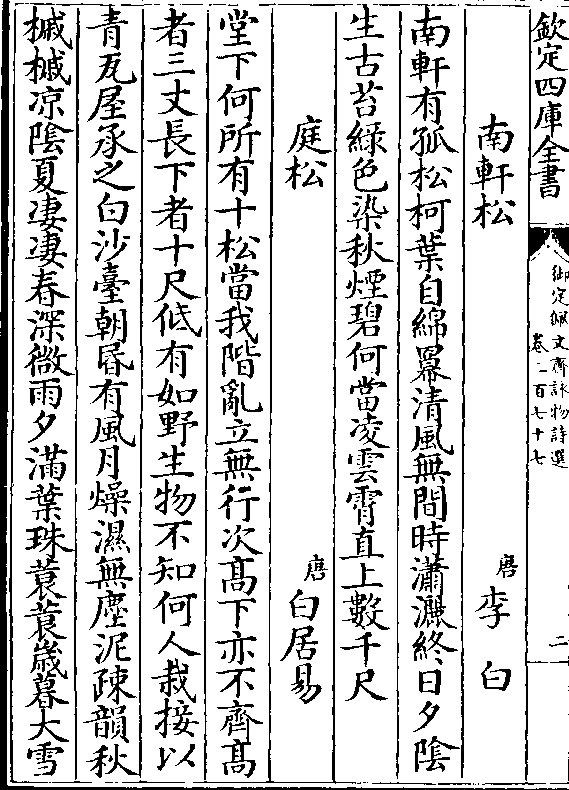 欽定四庫全書
御定佩文齋詠物詩選
卷二百七十七
二
南軒松
唐 李白
南軒有孤松柯葉自綿羃清風無間時瀟灑終日夕陰
生古苔綠色染秋煙碧何當凌雲霄直上數千尺
庭松
唐 白居易
堂下何所有十松當我階亂立無行次髙下亦不齊髙
者三丈長下者十尺低有如野生物不知何人栽接以
青瓦屋承之白沙臺朝昏有風月燥濕無塵泥疎韻秋
槭槭凉陰夏凄凄春深微雨夕滿葉珠蓑蓑嵗暮大雪